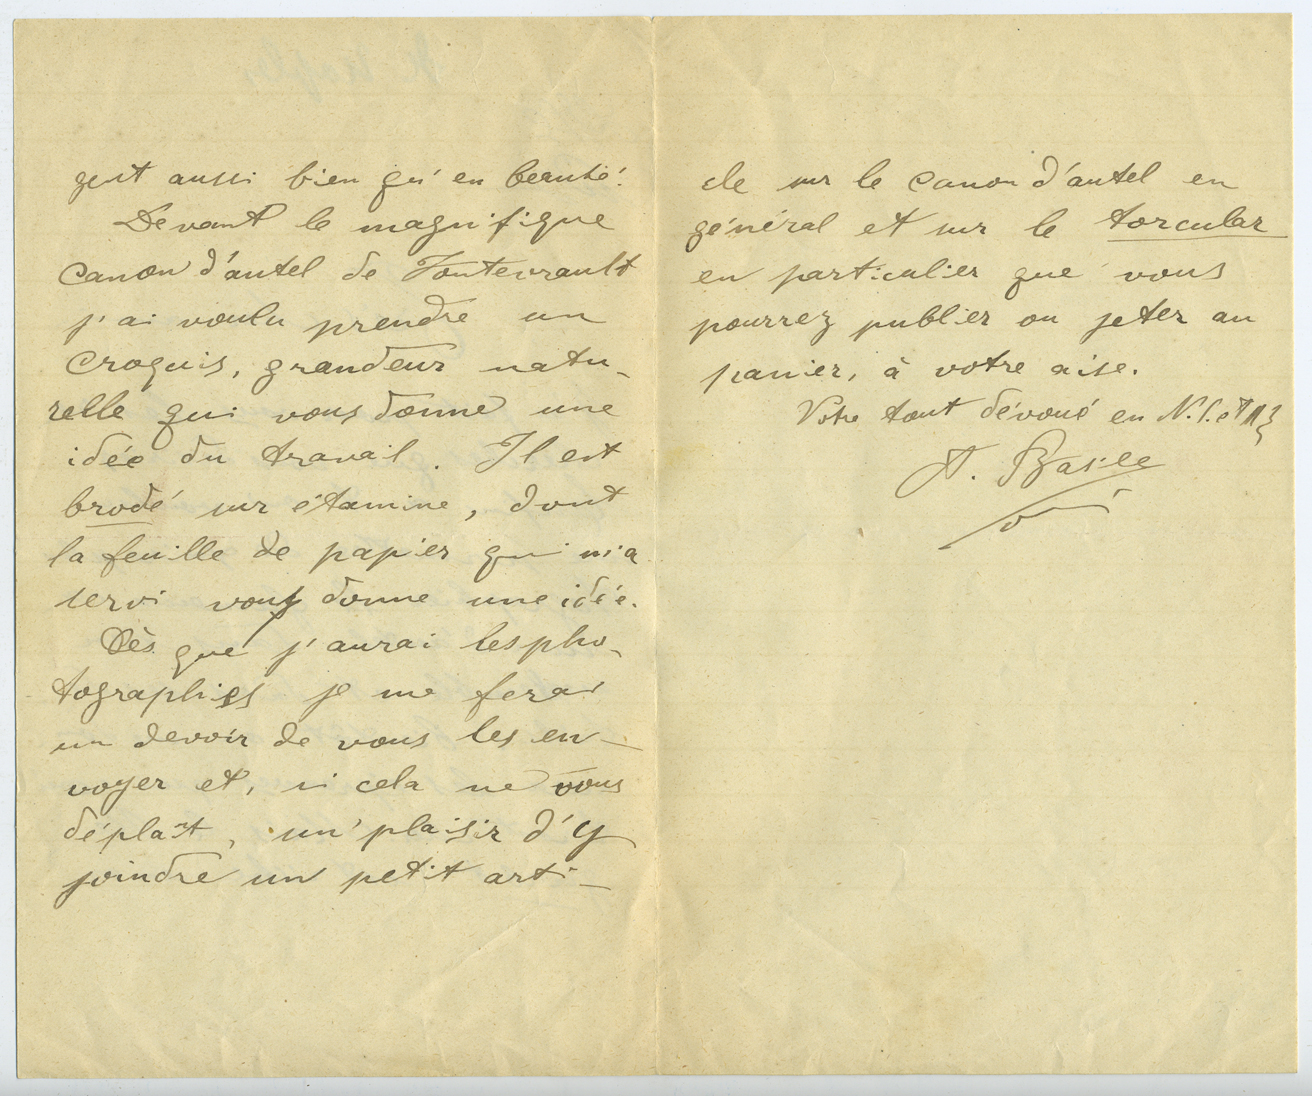 gent aussi bien qu'en beauté.
Devant le magnifique
canon d'autel de Fontevrault
j'ai voulu prendre un
croquis, grandeur natu-
relle qui vous donne une
idée du travail. Il est
brodé sur étamine, dont
la feuille de papier qui m'a
servi vous donne une idée.
Dès que j'aurai les pho-
tographies je me ferai
un devoir de vous les en-
voyer et, si cela ne vous
déplaît, un plaisir d'y
joindre un petit arti-
cle sur le canon d'autel en
général et sur le torcular
en particulier que vous
pourrez publier ou jeter au
panier, à votre aise.
Votre tout dévoué en N. S. et